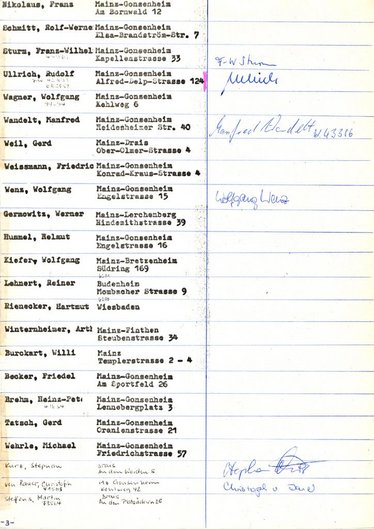 Nikolaus, Franz Mainz-Gonsenheim
Am Bornwald 12
Schmitt, Rolf-Werne Mainz-Gonsenheim
Elsa-Brandström-Str. 7
Sturm, Franz-Wilhel Mainz-Gonsenheim F-W Sturm
Kapellenstrasse 33
Ullrich, Rudolf Mainz-Gonsenheim
Alfred-Delp-Strasse 124
Wagner, Wolfgang Mainz-Gonsenheim
Kehlweg 6
Wandelt, Manfred Mainz-Gonsenheim Manfred Wandelt
Heidesheimer Str. 40
Weil, Gerd Mainz-Drais
Ober-Olmer-Strasse 4
Weissmann, Friedric Mainz-Gonsenheim
Konrad-Kraus-Strasse 4
Wenz, Wolfgang Mainz-Gonsenheim Wolfgang Wenz
Engelstrasse 15
Germowitz, Werner Mainz-Lerchenberg
Hindemithstrasse 39
Hummel, Helmut Mainz-Gonsenheim
Engelstrasse 16
Kiefer, Wolfgang Mainz-Bretzenheim
Südring 169
Lehnert, Reiner Budenheim
Mombacher Strasse 9
Rienecker, Hartmut Wiesbaden
Winternheimer, Art Mainz-Finthen
Steubenstrasse 34
Burckart, Willi Mainz
Templerstrasse 2 - 4
Becker, Friedel Mainz-Gonsenheim
Am Sportfeld 26
Brehm, Heinz-Pet Mainz-Gonsenheim
Lennebergplatz 3
Tatsch, Gerd Mainz-Gonsenheim
Oranienstrasse 21
Wehrle, Michael Mainz-Gonsenheim
Friedrichstrasse 57
Kurz, Stephan Stephan
Christoph v.
Steffens, Martin
-3-